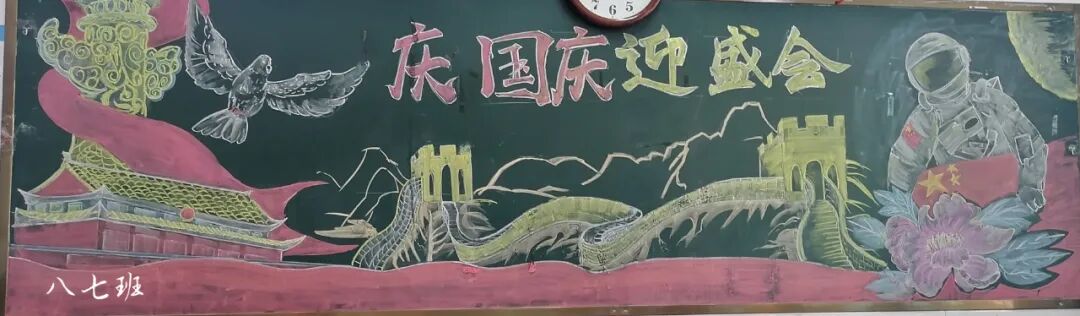 7 6 5
庆国庆迎盛会
八七班